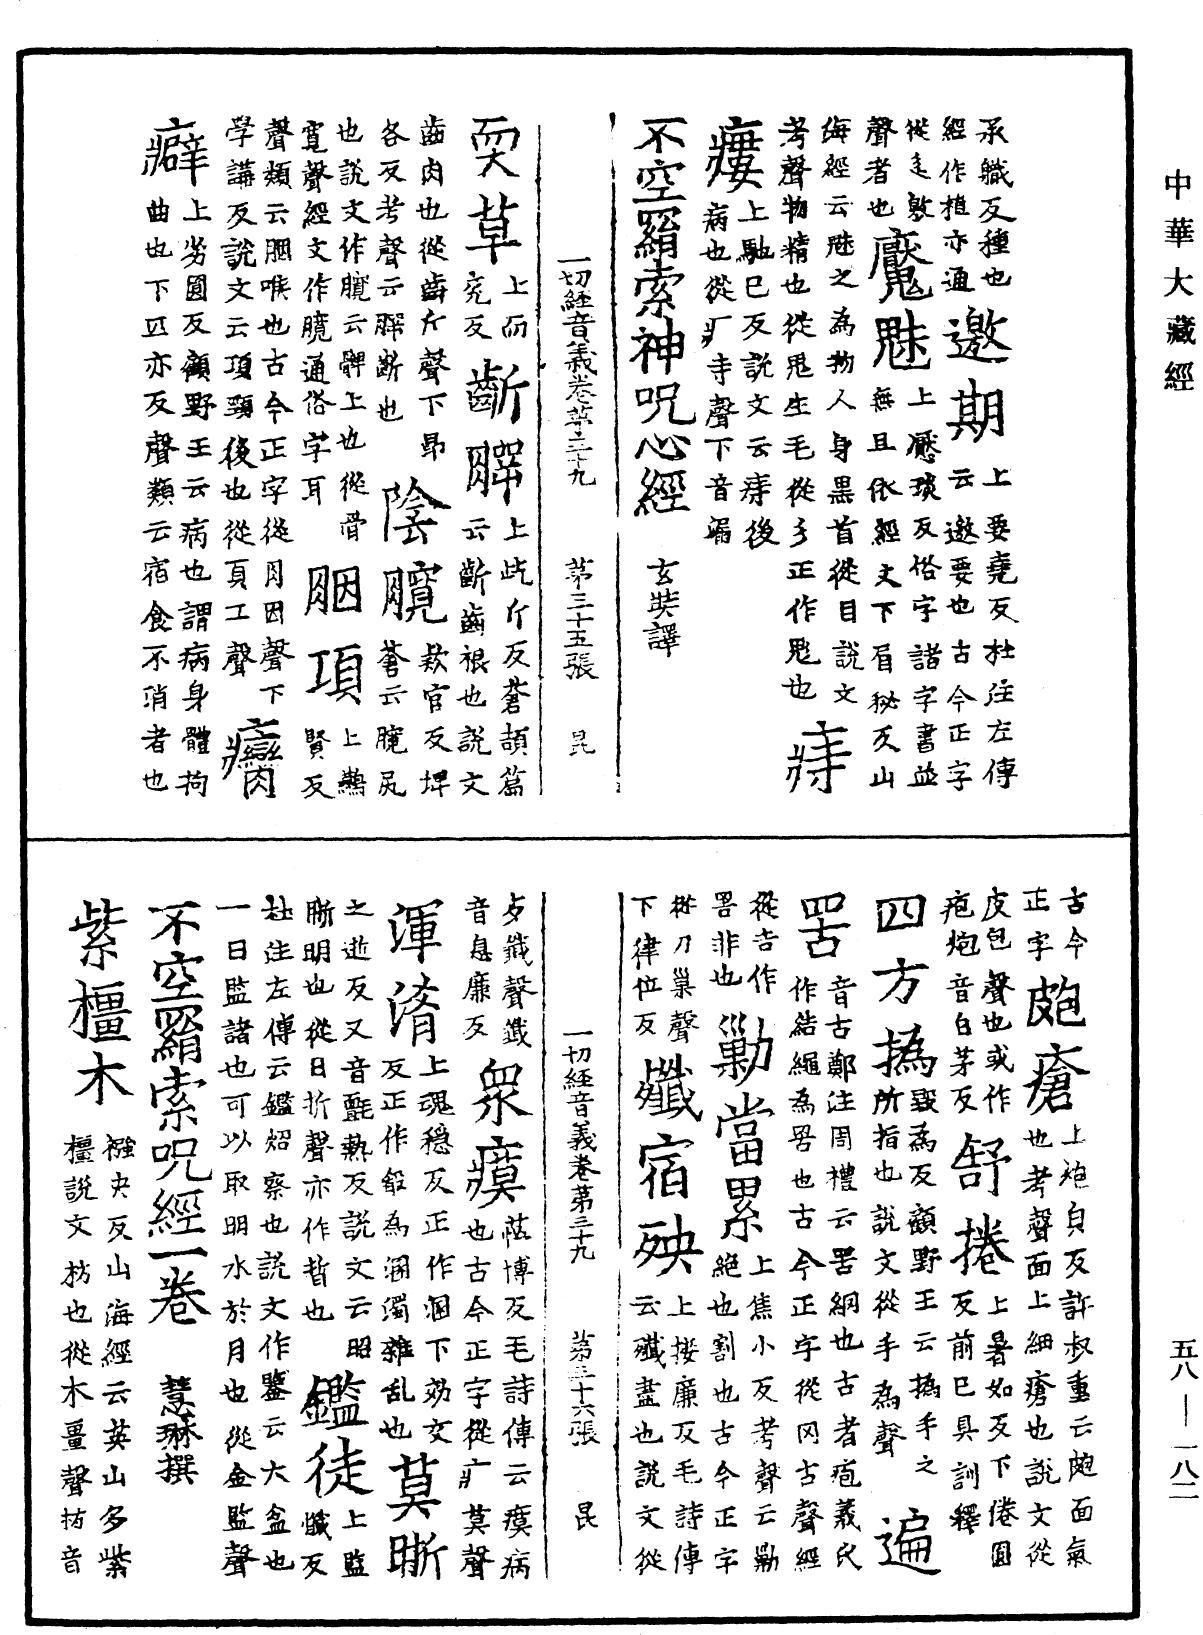 中華大藏經
承職反種也
經作植亦通
邀期
上要堯反杜注左傳
云邀要也古今正字
從辵敫
聲者也
魘魅
上壓琰反俗字諸字書並
無且依經文下眉祕反山
海經云魅之為物人身黑首從目說文
考聲物精也從鬼生毛從彡正作鬽也
痔
瘻
上馳巳反說文云痔後
病也從疒寺聲下音漏
不空羂索神呪心經
玄奘譯
一切經音義卷第三十九
第三十五張
昆
耎草
上而
兖反
齗腭
上此斤反蒼頡篇
云齗齒根也說文
齒肉也從齒斤聲下昴
各反考聲云腭斷也
陰臗
款官反埤
蒼云臗尻
也說文作髖云髀上也從骨
寬聲經文作臗通俗字耳
胭項
上鷰
賢反
聲類云胭喉也古今正字從月因聲下
學講反說文云項頸後也從頁工聲
癵
癖
上劣圓反顧野王云病也謂病身體拘
曲也下匹亦反聲類云宿食不消者也
古今
正字
皰瘡
上炮皃反許叔重云皰面氣
也考聲面上細瘡也說文從
皮包聲也或作
疱炮音白茅反
舒捲
上暑如反下倦圓
反前已具訓釋
四方撝
毀為反顧野王云撝手之
所指也說文從手為聲
遍
罟
音古鄭注周禮云罟網也古者疱羲氏
作結繩為罟也古今正字從网古聲經
從吉作
罟非也
剿當累
上焦小反考聲云剿
絕也割也古今正字
從刀巢聲
下律位反
殲宿殃
上接廉反毛詩傳
云殲盡也說文從
一切經音義卷第三十九
第三十六張
昆
歹韱聲韱
音息廉反
眾瘼
䒳博反毛詩傳云瘼病
也古今正字從疒莫聲
渾淆
上魂穩反正作溷下効交
反正作殽為溷濁雜乱也
莫晣
之逝反又音氈熱反說文云昭
晣明也從日折聲亦作晢也
鑑徒
上監
懺反
杜注左傳云鑑炤察也說文作鑒云大盆也
一曰監諸也可以取明水於月也從金監聲
不空羂索呪經一卷
慧琳撰
紫橿木
襁央反山海經云英山多紫
橿說文枋也從木畺聲枋音
五八—一八二